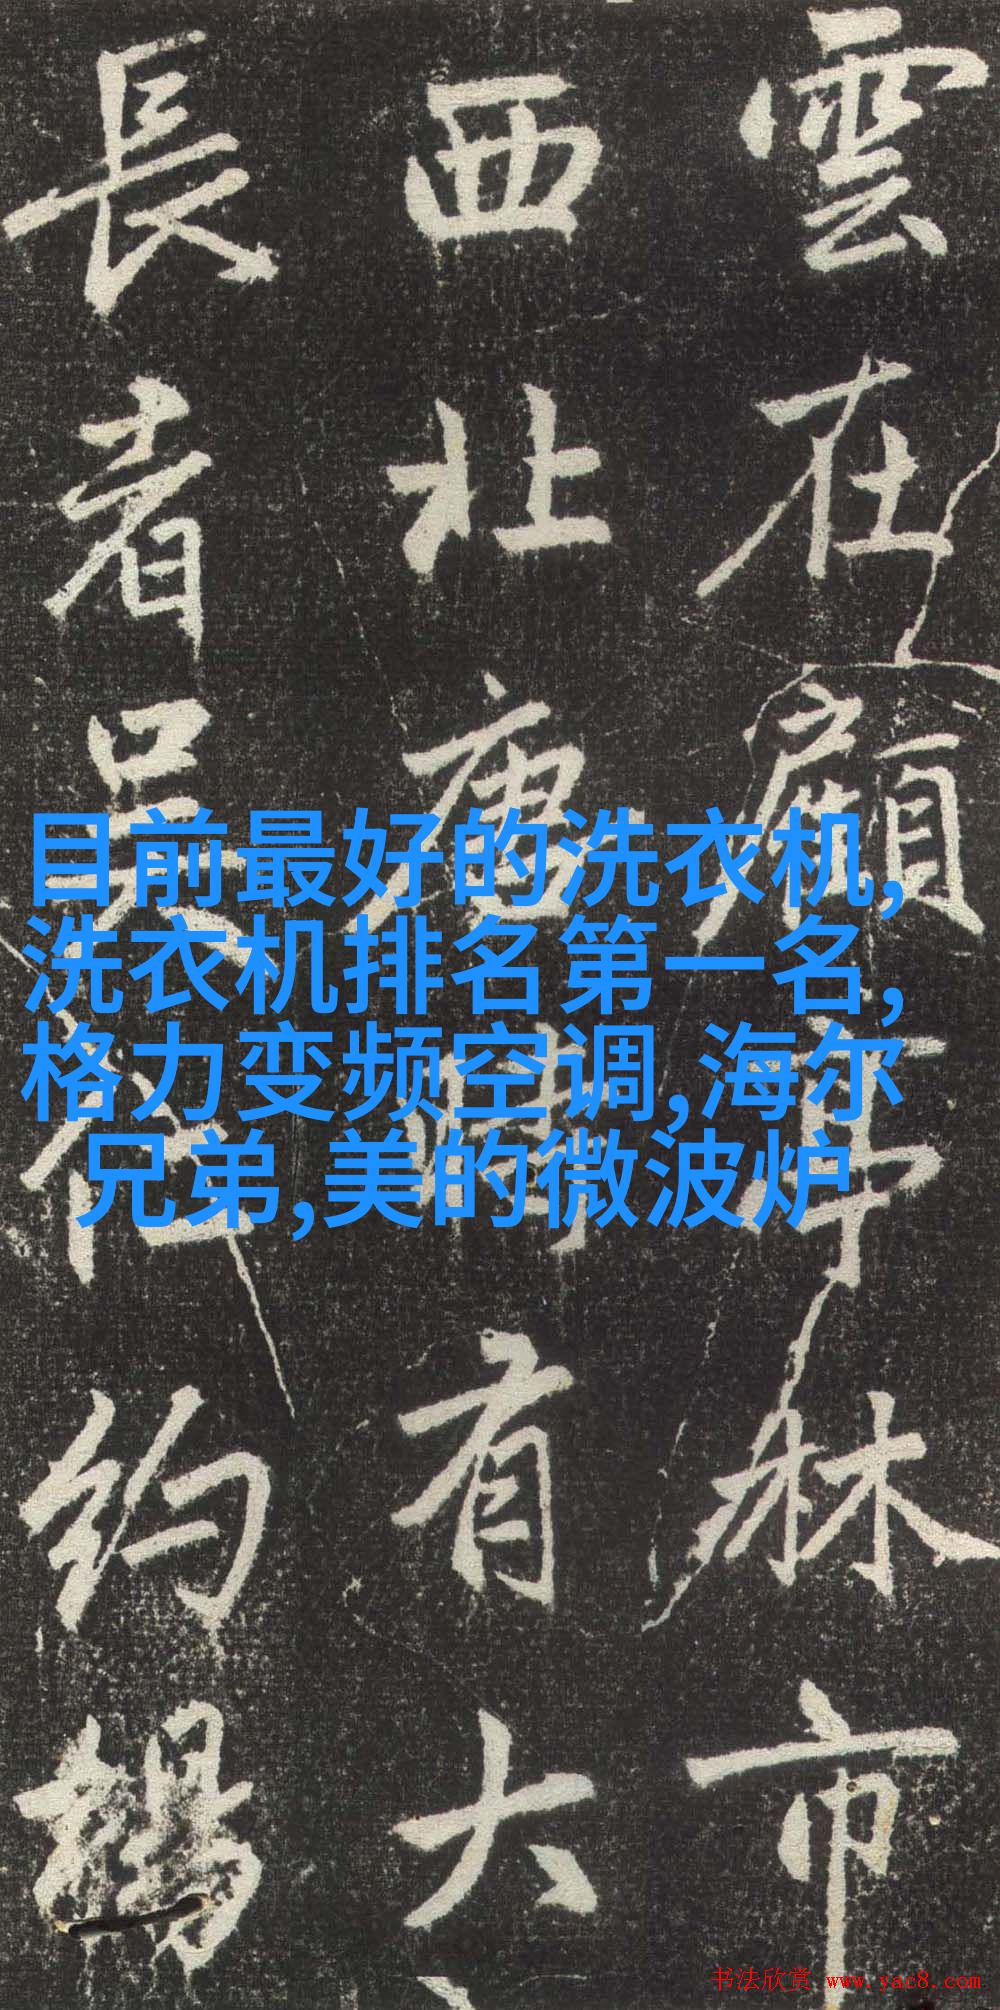 雲在顧亭林市
西北唐時有大
長者吳約
目前最好的洗衣机,
洗衣机排名第一名,
格力变频空调,海尔
兄弟,美的微波炉
书法欣赏 www.yac8.com